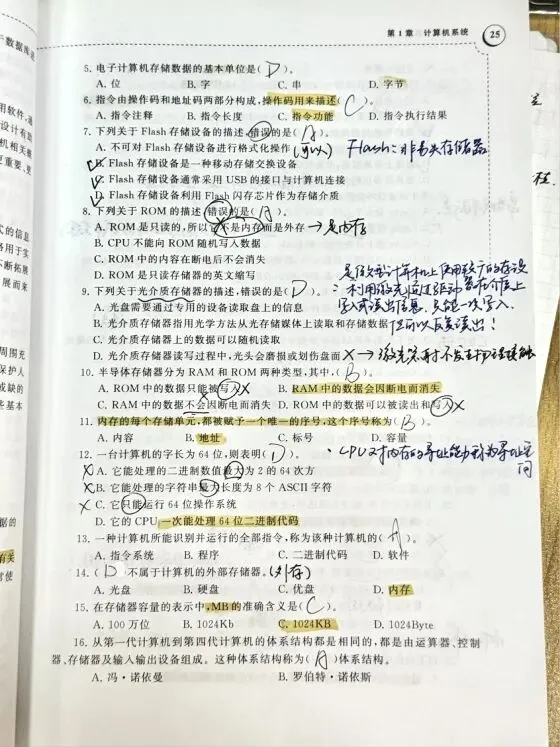 第1章 计算机系统 25
5. 电子计算机存储数据的基本单位是( D )。
A. 位 B. 字 C. 串 D. 字节
6. 指令由操作码和地址码两部分构成,操作码用来描述( C )。
A. 指令注释 B. 指令长度 C. 指令功能 D. 指令执行结果
7. 下列关于 Flash 存储设备的描述,错误的是( A )。
A. 不可对 Flash 存储设备进行格式化操作 (可以) Flash:非易失存储器
B. Flash 存储设备是一种移动存储交换设备
C. Flash 存储设备通常采用 USB 的接口与计算机连接
D. Flash 存储设备利用 Flash 闪存芯片作为存储介质
8. 下列关于 ROM 的描述,错误的是( A )。
A. ROM 是只读的,所以它不是内存而是外存 → 是内存
B. CPU 不能向 ROM 随机写入数据
C. ROM 中的内容在断电后不会消失
D. ROM 是只读存储器的英文缩写
9. 下列关于光介质存储器的描述,错误的是( D )。
A. 光盘需要通过专用的设备读取盘上的信息
写入或读出信息,只能一次写入,
B. 光介质存储器指用光学方法从光存储媒体上读取和存储数据
但可以反复读出!
C. 光介质存储器上的数据可以随机读取
D. 光介质存储器读写过程中,光头会磨损或划伤盘面 X →
10. 半导体存储器分为 RAM 和 ROM 两种类型,其中,( B )。
A. ROM 中的数据只能被写入 X B. RAM 中的数据会因断电而消失
C. RAM 中的数据不会因断电而消失 D. ROM 中的数据可以被读出和写入 X
11. 内存的每个存储单元,都被赋予一个唯一的序号,这个序号称为( B )。
A. 内容 B. 地址 C. 标号 D. 容量
12. 一台计算机的字长为 64 位,则表明( D )。 CPU对内存的寻址能力称为寻址空间
X A. 它能处理的二进制数值最大为 2 的 64 次方
X B. 它能处理的字符串最大长度为 8 个 ASCII 字符
X C. 它只能运行 64 位操作系统
D. 它的 CPU 一次能处理 64 位二进制代码
13. 一种计算机所能识别并运行的全部指令,称为该种计算机的( A )。
A. 指令系统 B. 程序 C. 二进制代码 D. 软件
14. ( D 不属于计算机的外部存储器。(外存)
A. 光盘 B. 硬盘 C. 优盘 D. 内存
15. 在存储器容量的表示中,MB 的准确含义是( C )。
A. 100 万位 B. 1024Kb C. 1024KB D. 1024Byte
16. 从第一代计算机到第四代计算机的体系结构都是相同的,都是由运算器、控制
器、存储器及输入输出设备组成。这种体系结构称为( A )体系结构。
A. 冯·诺依曼 B. 罗伯特·诺依斯